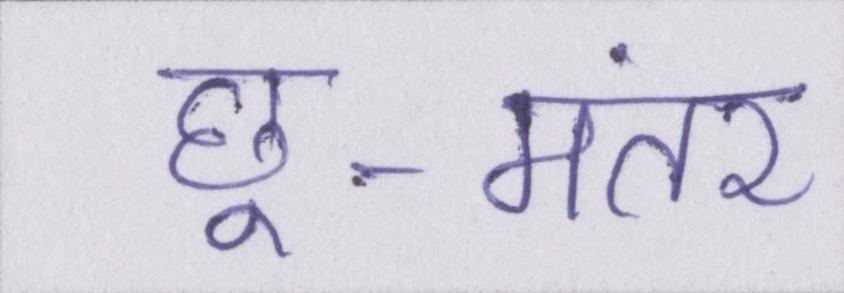 छू-मंतर